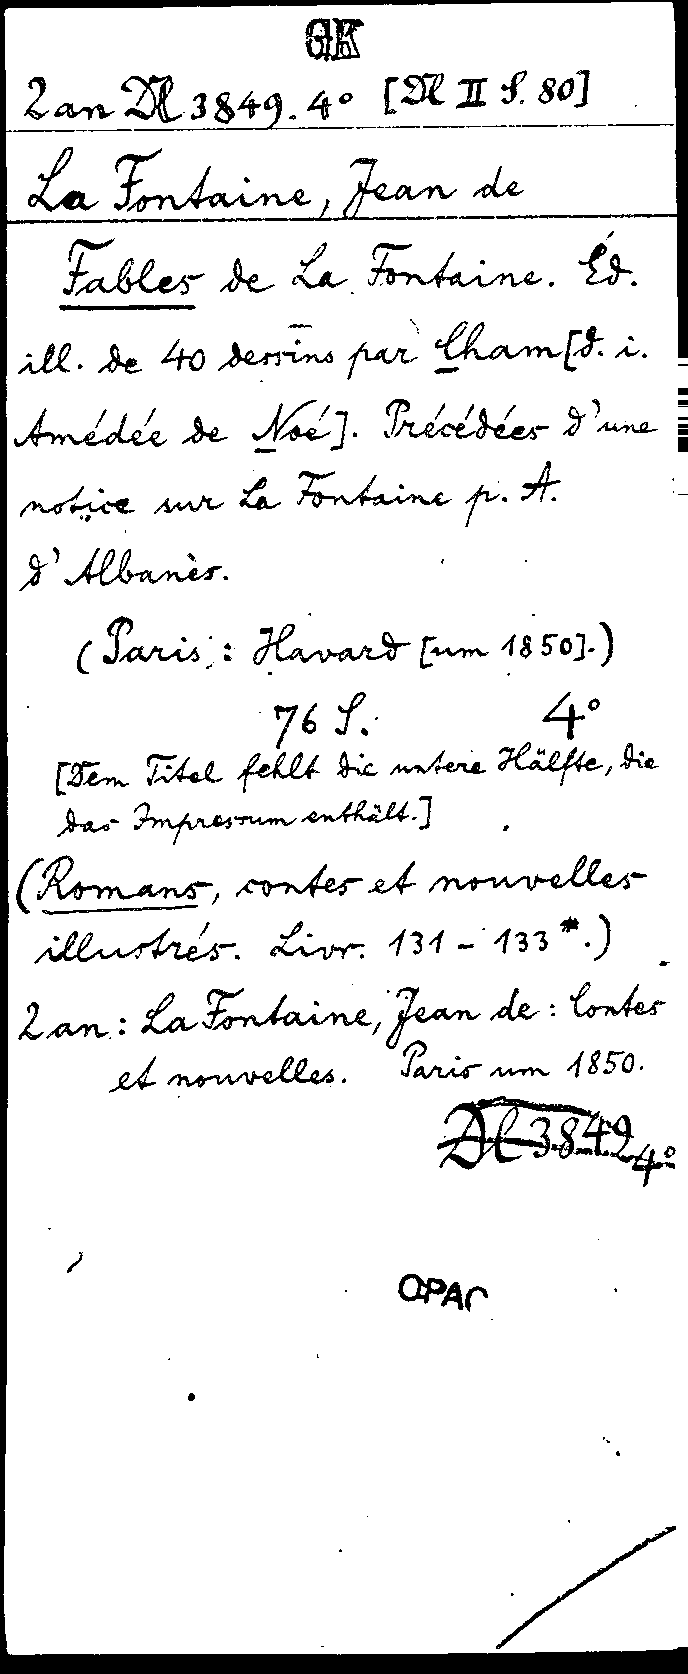 GK
2 an Dl 3849. 4° [Dl II S. 80]
La Fontaine, Jean de
Fables de La Fontaine. Éd.
ill. de 40 dessins par Cham [d. i.
Amédée de Noé]. Précédées d'une
notice sur La Fontaine p. A.
d'Albanès.
(Paris: Havard [um 1850].)
76 S. 4°
[Dem Titel fehlt die untere Hälfte, die
das Impressum enthält.]
(Romans, contes et nouvelles
illustrés. Livr. 131 - 133*.)
2 an: La Fontaine, Jean de: Contes
et nouvelles. Paris um 1850.
Dl 3849 4°
OPAC